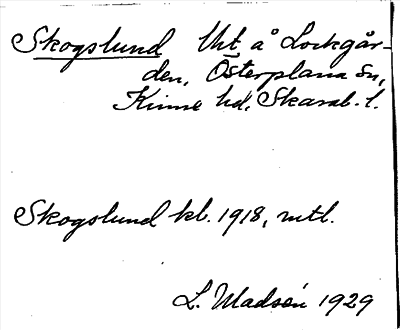 Skogslund Utt å Lockgår-
den, Österplana sn,
Kinne hd, Skarab. l.
Skogslund kb. 1918, mtl.
L. Madsén 1929